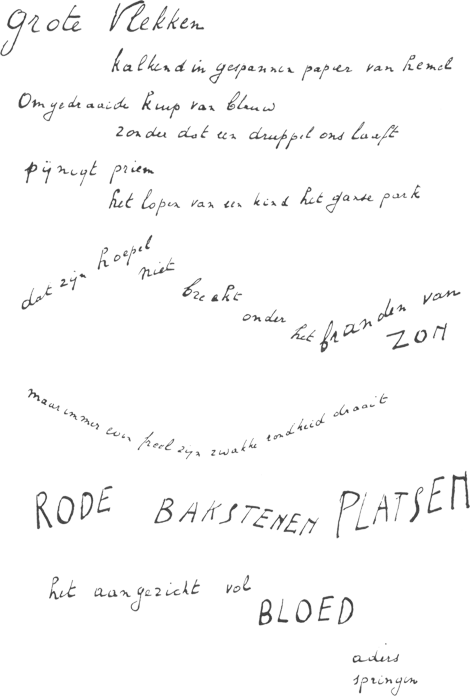 grote Vlekken
kalkend in gespannen papier van hemel
Omgedraaide kuip van blauw
zonder dat een druppel ons laaft
pijnigt priem
het lopen van een kind het ganse park
dat zijn hoepel niet breekt onder het branden van ZON
maar immer even frool zijn zwakke rondheid draait
RODE BAKSTENEN PLATSEN
het aangezicht vol
BLOED
aders
springen